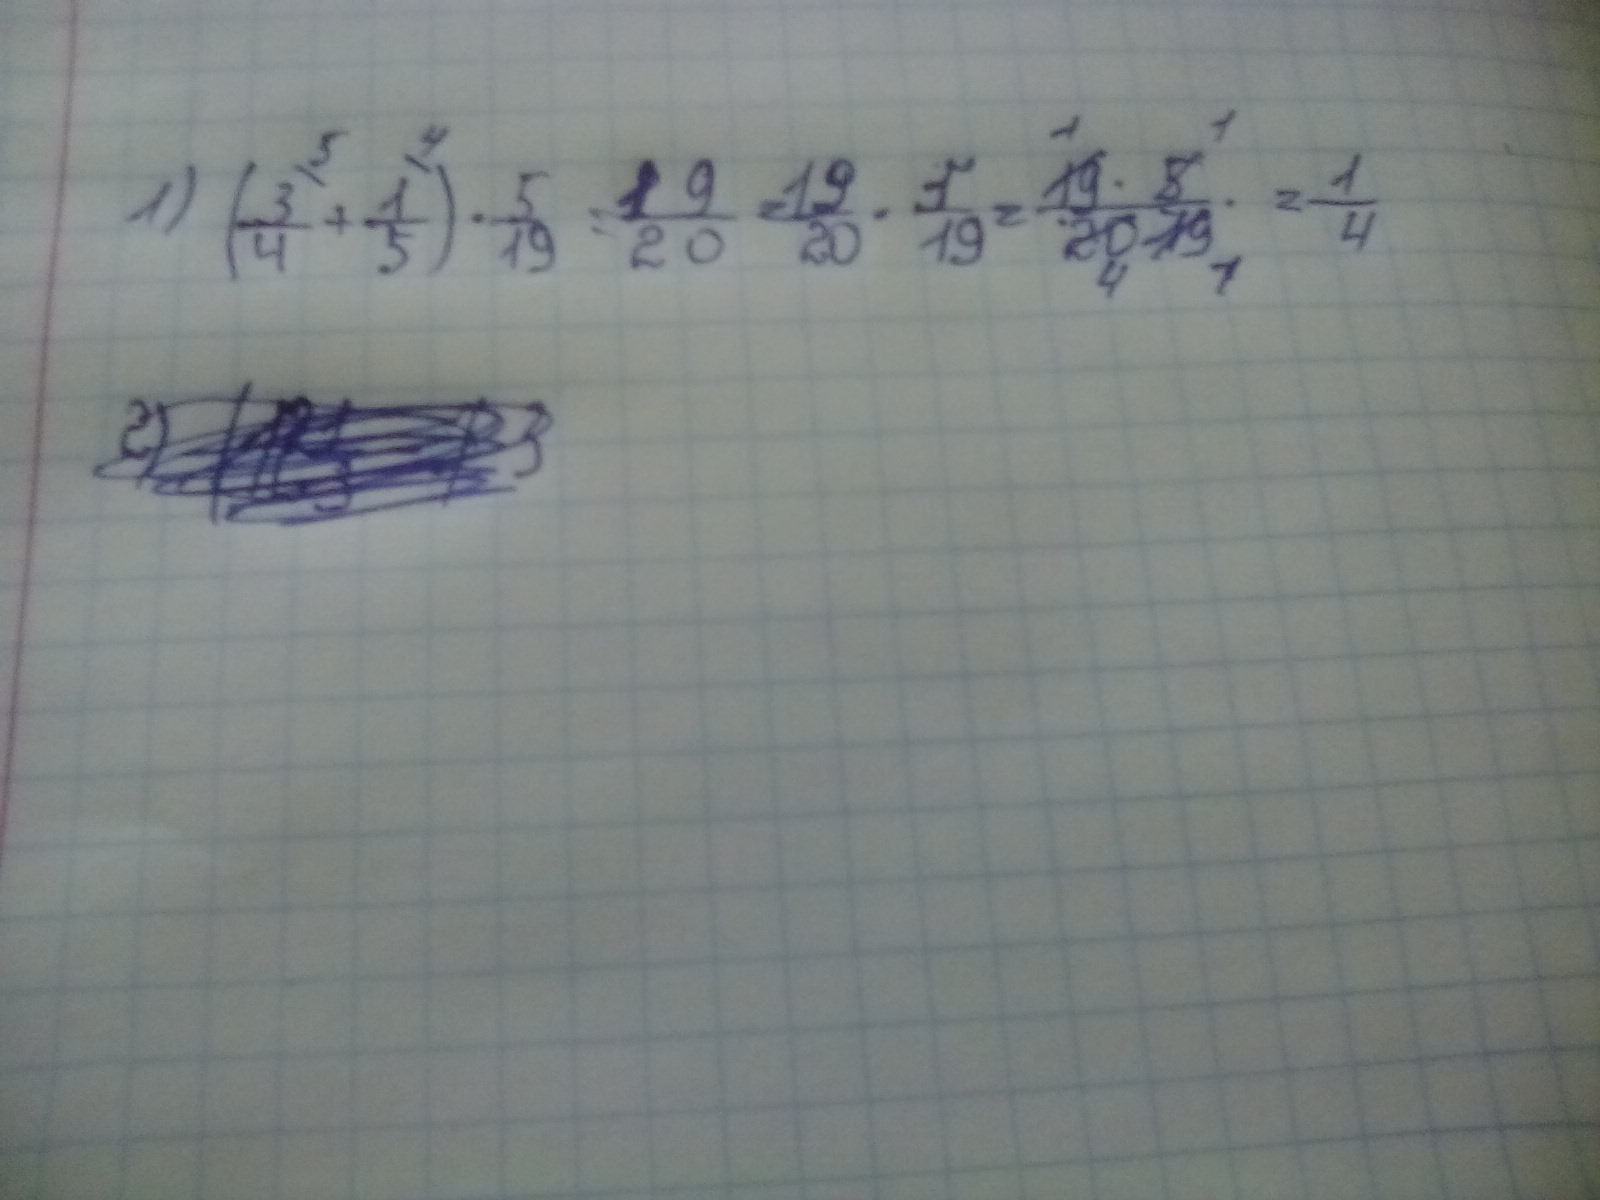 1) (3/4 ⁵ + 1/5 ⁴) · 5/19 = 19/20 = 19/20 · 5/19 = 19 · 5 / 20 · 19 = 1/4
2)